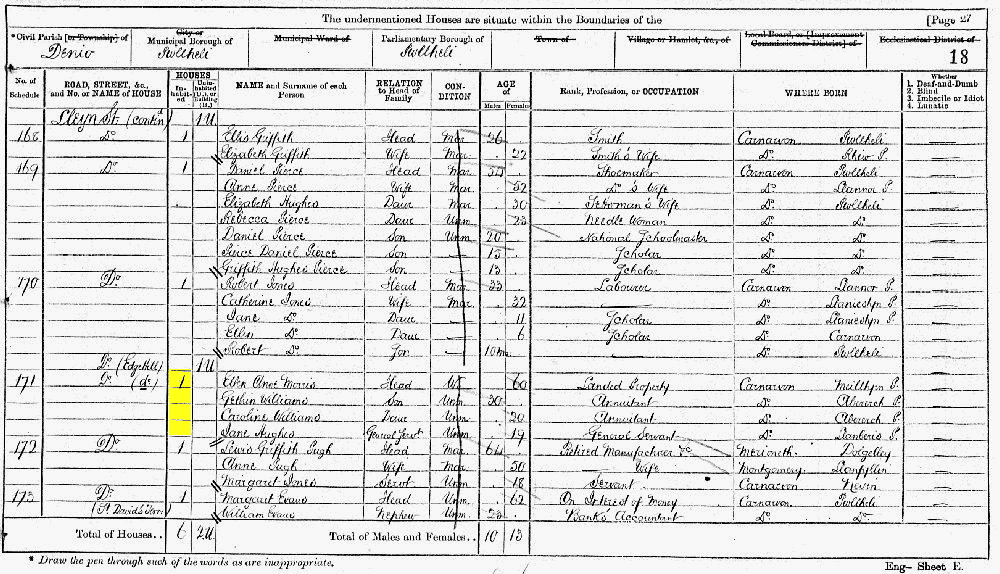 The undermentioned Houses are situate within the Boundaries of the [Page 27
*Civil Parish [or Township] of City or Municipal Borough of Municipal Ward of Parliamentary Borough of Town of Village or Hamlet, &c., of Local Board, or [Improvement Commissioners District] of Ecclesiastical District of
Denio Pwllheli Pwllheli 18
No. of Schedule ROAD, STREET, &c., and No. or NAME of HOUSE HOUSES In-habit-ed Unin-habited (U.), or Building (B.) NAME and Surname of each Person RELATION to Head of Family CON-DITION AGE of Males Females Rank, Profession, or OCCUPATION WHERE BORN Whether 1. Deaf-and-Dumb 2. Blind 3. Imbecile or Idiot 4. Lunatic
Lleyn St. (contin) 1U
168 Do 1 Ellis Griffith Head Mar 26 Smith Carnarvon Pwllheli
Elizabeth Griffith Wife Mar 22 Smith's Wife Do Rhiw P.
169 Do 1 Daniel Pierce Head Mar Shoemaker Carnarvon Pwllheli
Anne Pierce Wife Mar 52 Do's Wife Do Llannor P.
Elizabeth Hughes Daur Mar 30 Wife Do Pwllheli
Rebecca Pierce Daur Unm 23 Needle Woman Do Do
Daniel Pierce Son Unm 20 National Schoolmaster Do Do
Pierce Daniel Pierce Son 15 Scholar Do Do
Griffith Hughes Pierce Son 13 Scholar Do Do
170 Do 1 Robert Jones Head Mar 33 Labourer Carnarvon Llannor P.
Catherine Jones Wife Mar 32 Do Llaniestyn P.
Jane Do Daur 11 Scholar Do Llaniestyn P.
Ellen Do Daur 6 Scholar Do Carnarvon
Robert Do Son 10m Do Pwllheli
Do (Edge Hill) 1U
171 Do (do) 1 Ellen Anne Morris Head W 60 Landed Property Carnarvon P.
Gethin Williams Son Unm 30 Annuitant Do Abererch P.
Caroline Williams Daur Unm 20 Annuitant Do Abererch P.
Jane Hughes General Servt Unm 19 General Servant Do Llanberis P.
172 Do 1 Lewis Griffith Pugh Head Mar 64 Retired Manufacturer &c Merioneth Dolgelley
Anne Pugh Wife Mar 50 Wife Montgomery Llanfyllin
Margaret Jones Servt Unm 18 Servant Carnarvon Nevin
173 Do 1 Margaret Evans Head Unm 62 On Interest of Money Carnarvon Pwllheli
(St David's Terr) William Evans Nephew Unm 23 Bank's Accountant Do Do
Total of Houses.. 6 2U Total of Males and Females.. 10 13
* Draw the pen through such of the words as are inappropriate.
Eng- Sheet E.